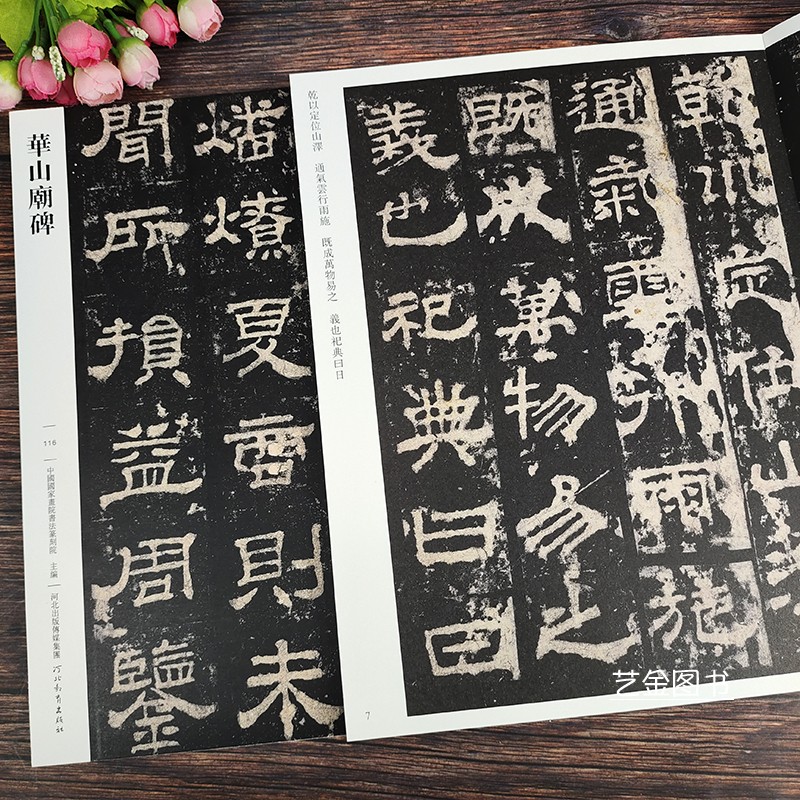 華山廟碑
116
中國國家畫院書法篆刻院 主編
河北出版傳媒集團 河北教育出版社
燔燎夏商則未
聞所損益周鑒
乾以定位山澤 通氣雲行雨施 既成萬物易之 義也祀典曰日
乾以定位山澤
通氣雲行雨施
既成萬物易之
義也祀典曰日
7
艺金图书